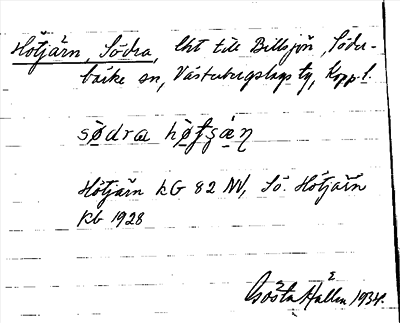 Hötjärn, Södra, lht till Billsjön, Söder-
bärke sn, Västerbergslags tg, Kopp.l.
södra hø̀tʂän
Hötjärn kG 82 NV, Sö. Hötjärn
Kb 1928
Gösta Hallin 1934.